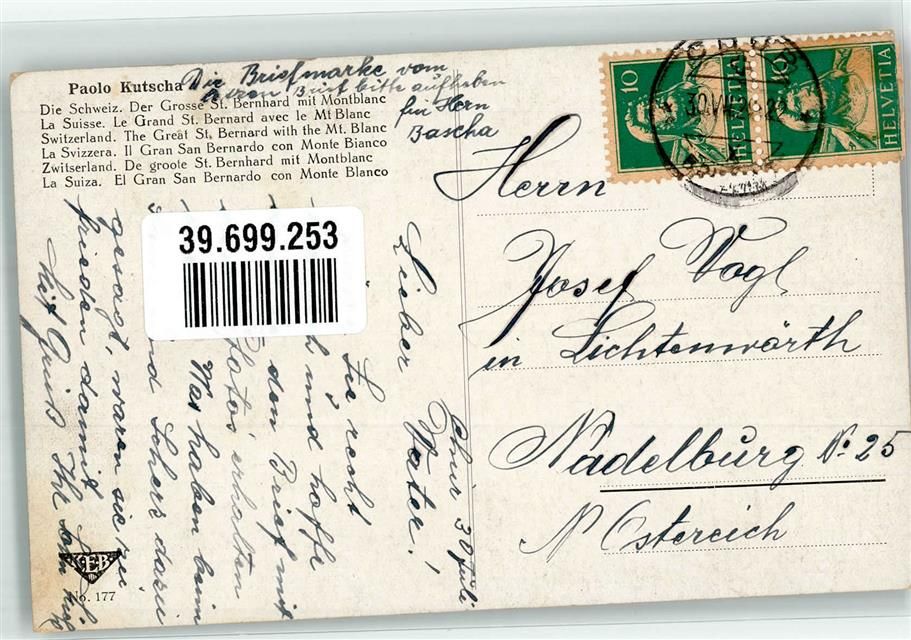 Paolo Kutscha
Die Schweiz. Der Grosse St. Bernhard mit Montblanc
La Suisse. Le Grand St. Bernard avec le Mt Blanc
Switzerland. The Great St. Bernard with the Mt. Blanc
La Svizzera. Il Gran San Bernardo con Monte Bianco
Zwitserland. De groote St. Bernhard mit Montblanc
La Suiza. El Gran San Bernardo con Monte Blanco
Die Briefmarke vom
bitte aufheben
für Herrn
Bascha
10 HELVETIA
10 HELVETIA
Herrn
Josef Vogl
in Lichtenwörth
Nadelburg No 25
N Östereich
39.699.253
Chur 30 Juli
Lieber Vater!
recht
und hoffe
den Brief mit
Fotos, erhalten
Was haben beim
und Schers dazu
gesagt, waren sie zu
frieden damit
Mit Gruß Ihr
KEB
No. 177